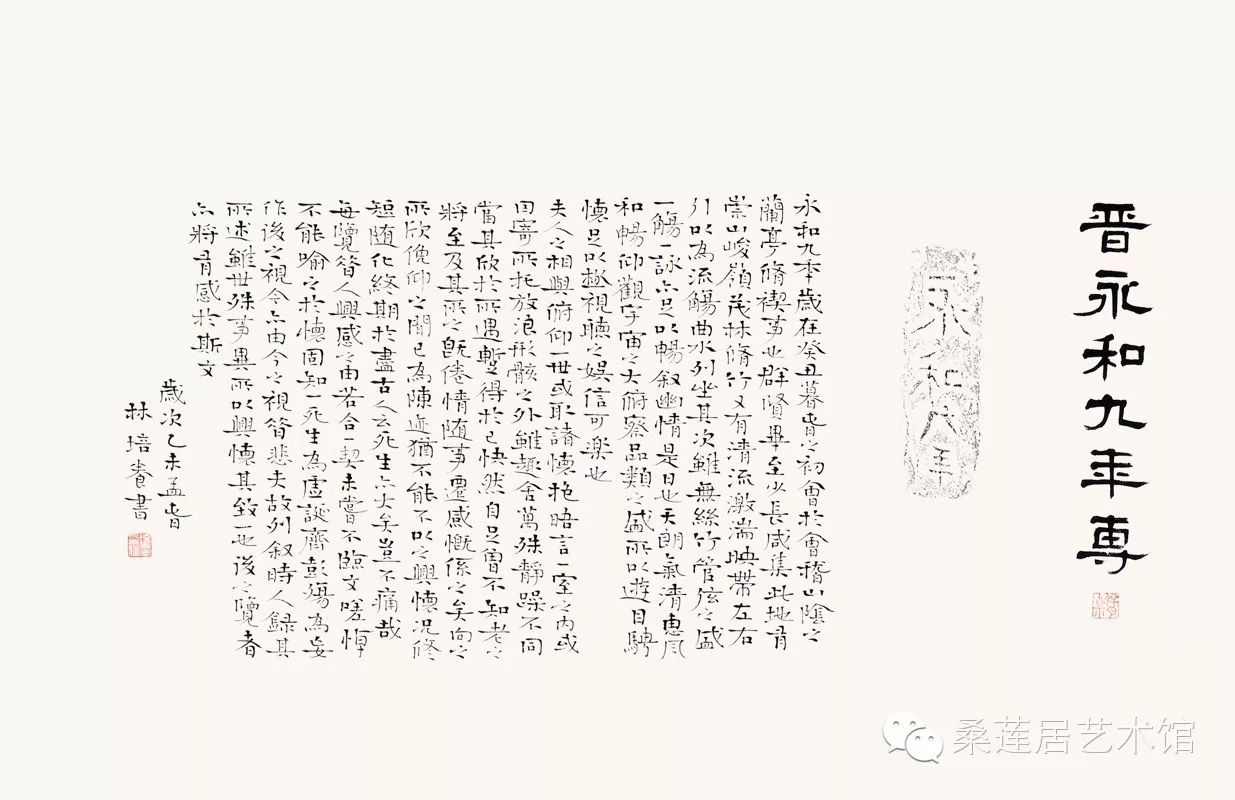 晉永和九年専
永和九年
永和九年歲在癸丑暮春之初會於會稽山陰之
蘭亭脩禊事也群賢畢至少長咸集此地有
崇山峻嶺茂林脩竹又有清流激湍映帶左右
引以為流觴曲水列坐其次雖無絲竹管弦之盛
一觴一詠亦足以暢叙幽情是日也天朗氣清惠風
和暢仰觀宇宙之大俯察品類之盛所以遊目騁
懷足以極視聽之娛信可樂也
夫人之相與俯仰一世或取諸懷抱晤言一室之內或
因寄所托放浪形骸之外雖趣舍萬殊靜躁不同
當其欣於所遇暫得於己快然自足曾不知老之
將至及其所之既倦情随事遷感慨係之矣向之
所欣俛仰之間已為陳迹猶不能不以之興懷況修
短随化終期於盡古人云死生亦大矣豈不痛哉
每覽昔人興感之由若合一契未嘗不臨文嗟悼
不能喻之於懷固知一死生為虛誕齊彭殤為妄
作後之視今亦由今之視昔悲夫故列叙時人録其
所述雖世殊事異所以興懷其致一也後之覽者
亦將有感於斯文
歲次乙未孟春
林培養書
桑莲居艺术馆